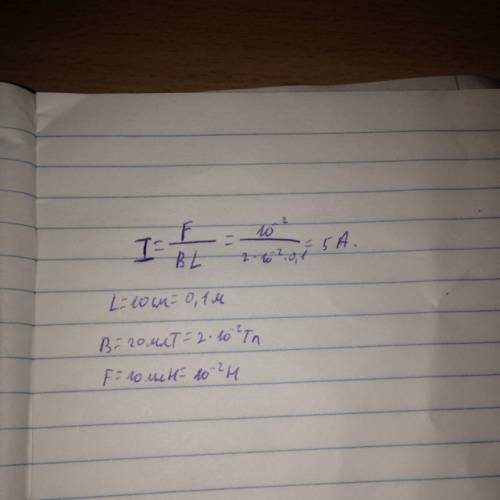 I = F / BL = 10⁻² / 2·10⁻²·0,1 = 5 А.
L=10см= 0,1м
B=20млТ=2·10⁻²Тл
F=10млН= 10⁻²Н